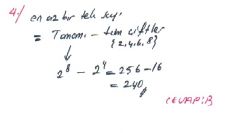 4-) en az bir tek sayı
= Tümü - tüm çiftler
{2,4,6,8}
2⁸ - 2⁴ = 256 - 16
= 240
CEVAP: B